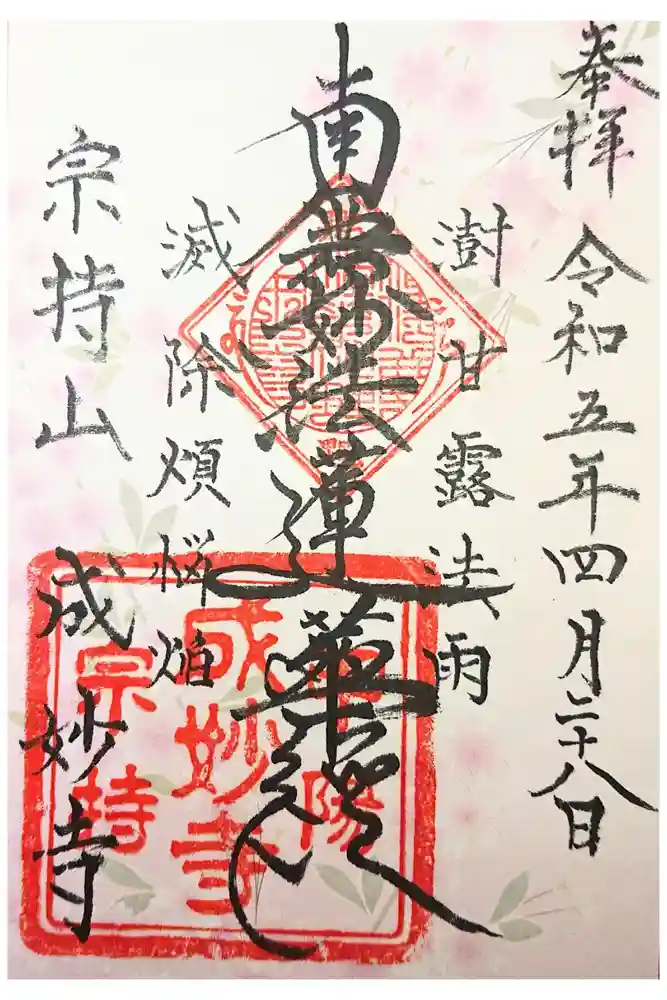 奉拝
令和五年四月二十八日
澍甘露法雨
南無妙法蓮華経
滅除煩悩焔
宗持山
成妙寺
陽
成妙寺
宗持